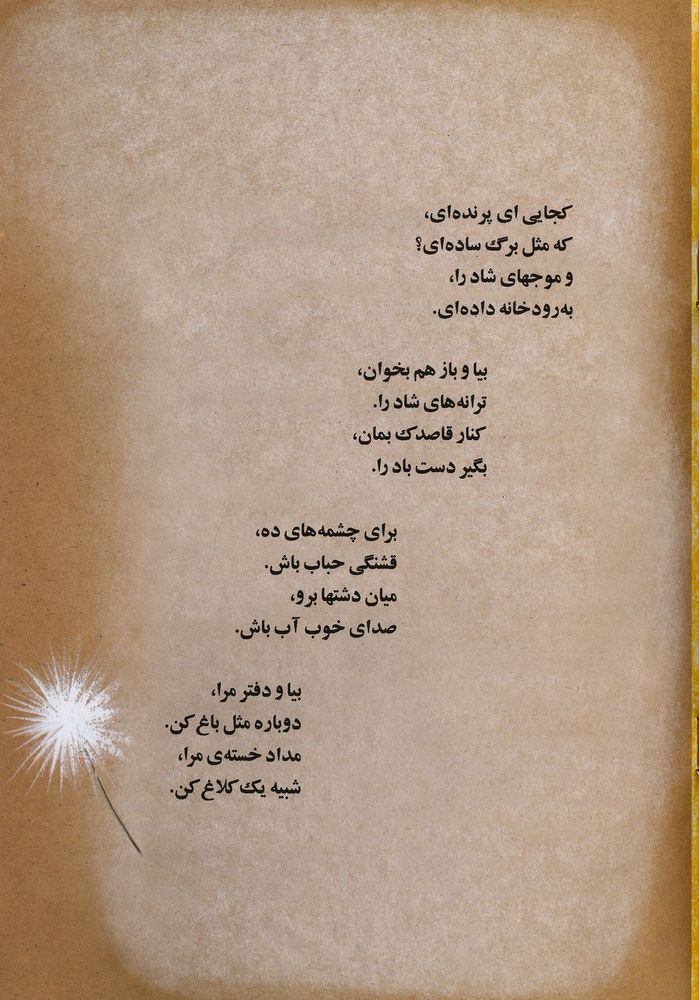 کجایی ای پرنده‌ای،
که مثل برگ ساده‌ای؟
و موجهای شاد را،
به‌رودخانه داده‌ای.
بیا و باز هم بخوان،
ترانه‌های شاد را.
کنار قاصدک بمان،
بگیر دست باد را.
برای چشمه‌های ده،
قشنگی حباب باش.
میان دشتها برو،
صدای خوب آب باش.
بیا و دفتر مرا،
دوباره مثل باغ کن.
مداد خسته‌ی مرا،
شبیه یک کلاغ کن.